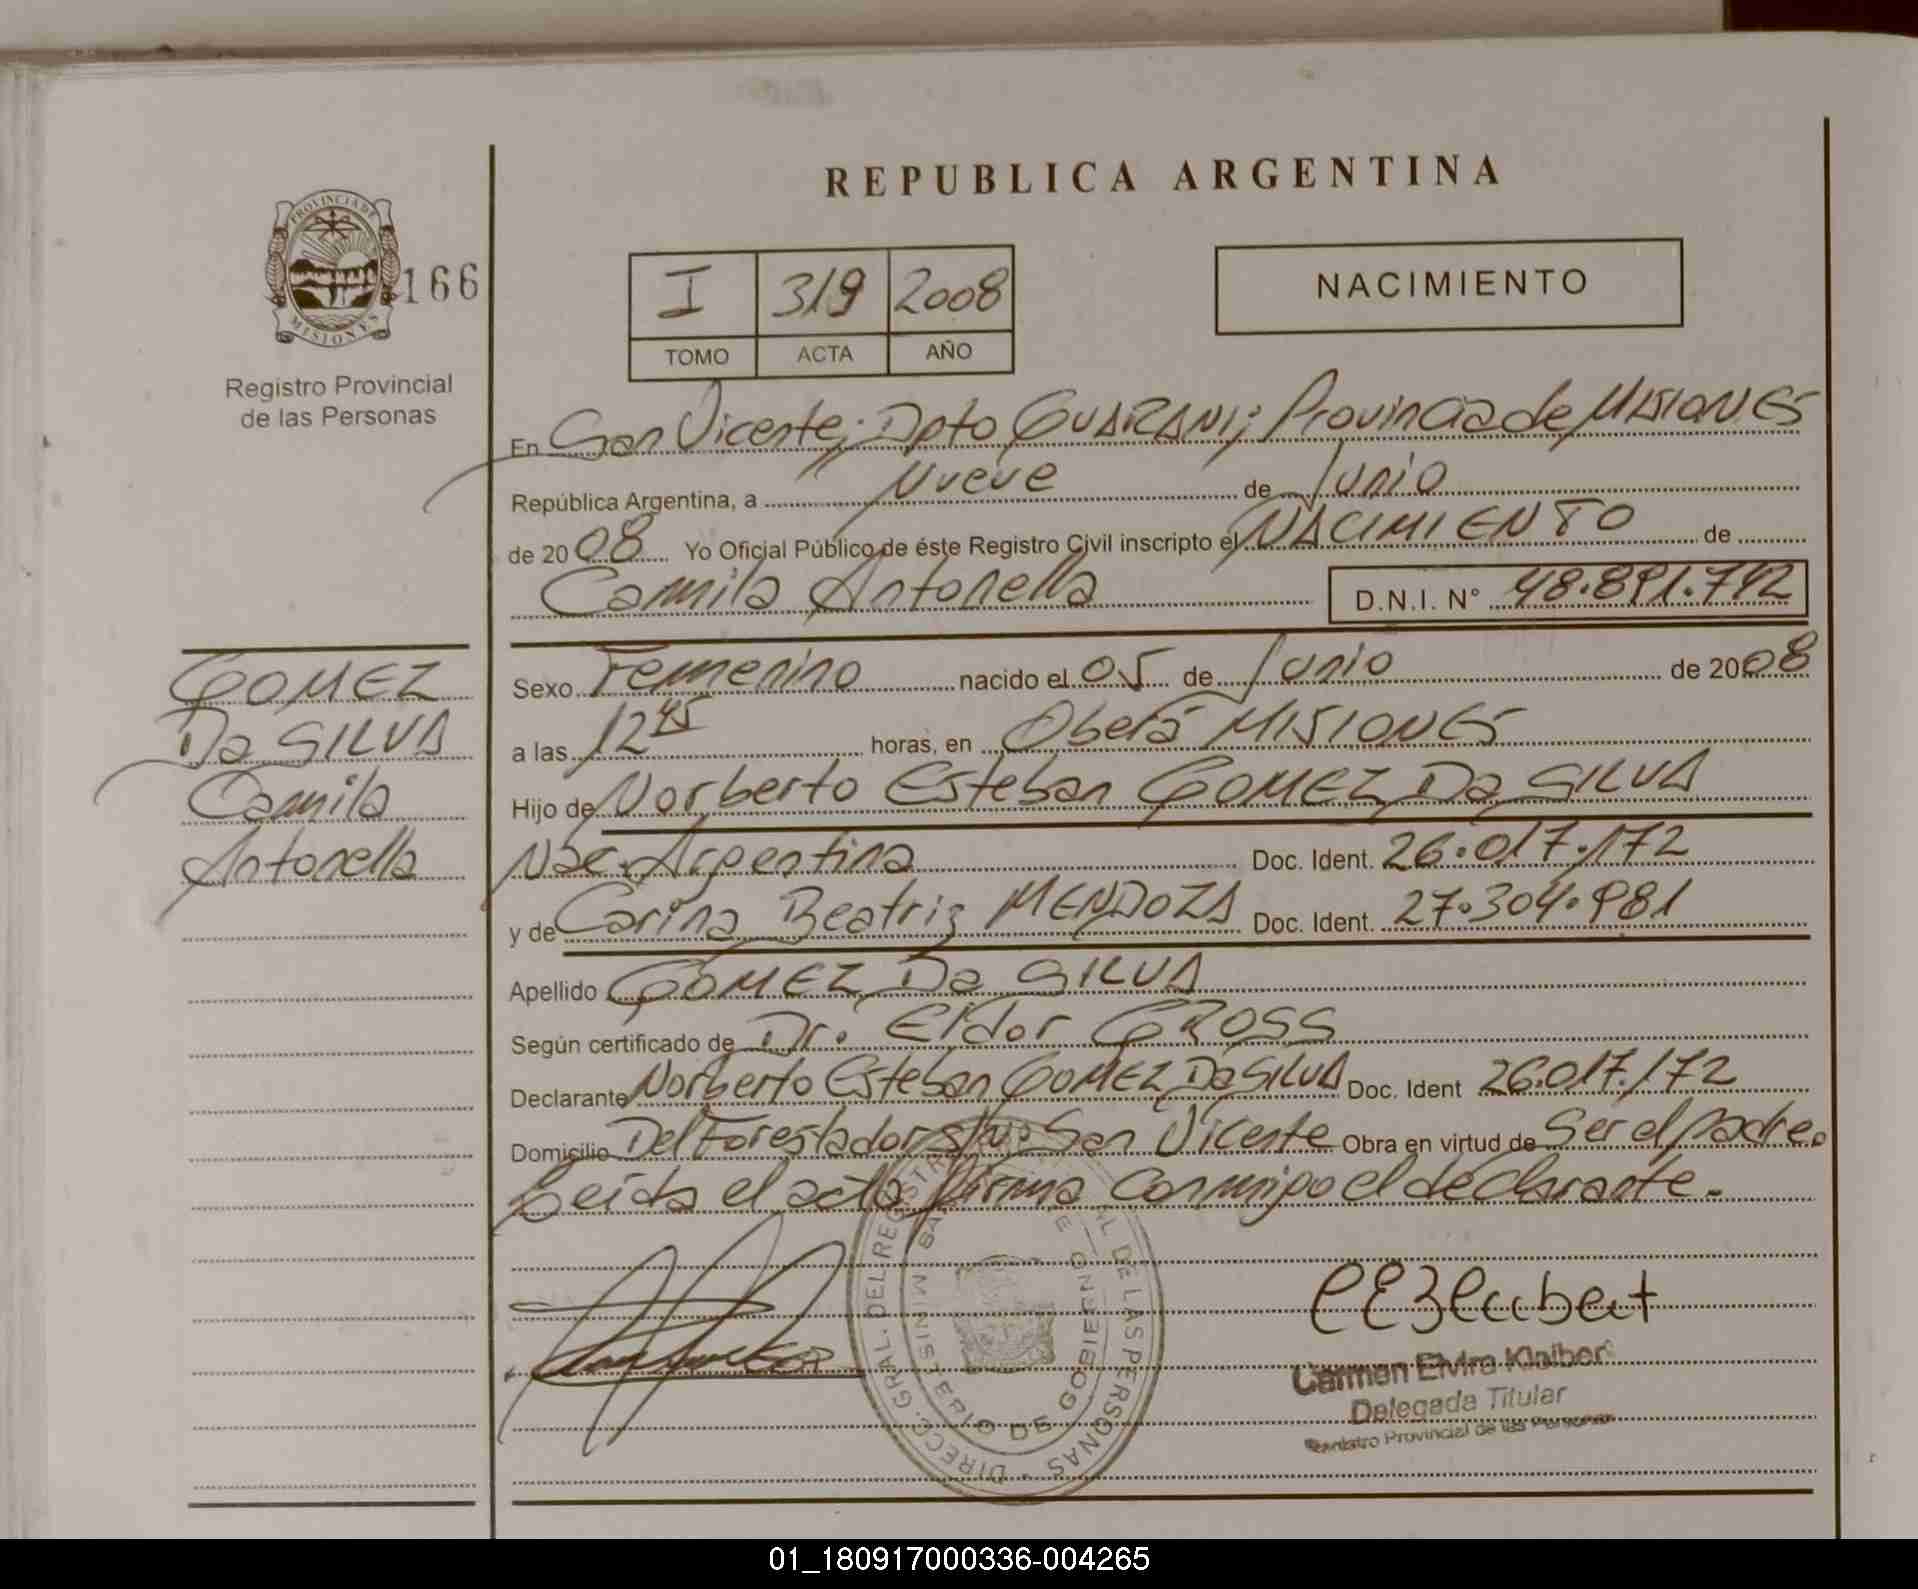 REPUBLICA ARGENTINA
PROVINCIA DE
MISIONES
166
Registro Provincial
de las Personas
I 319 2008
TOMO ACTA AÑO
NACIMIENTO
En San Vicente; Dpto GUARANI; Provincia de MISIONES
República Argentina, a Nueve de Junio
de 2008 Yo Oficial Público de éste Registro Civil inscripto el NACIMIENTO de
Camila Antonella D.N.I. N° 48.891.742
GOMEZ
Da SILVA
Camila
Antonella
Sexo Femenino nacido el 05 de Junio de 2008
a las 12 45 horas, en Oberá MISIONES
Hijo de Norberto Esteban GOMEZ Da SILVA
Nac. Argentina Doc. Ident. 26.017.172
y de Carina Beatriz MENDOZA Doc. Ident. 27.304.981
Apellido GOMEZ Da SILVA
Según certificado de Dr. Eldor GROSS
Declarante Norberto Esteban GOMEZ Da SILVA Doc. Ident 26.017.172
Domicilio Del Forestador s/n. San Vicente Obra en virtud de Ser el padre.
Leída el acta firma conmigo el declarante.
DIRECC. GRAL. DEL REGISTRO DE LAS PERSONAS
MINISTERIO DE GOBIERNO
Carmen Elvira Klaiber
Delegada Titular
Registro Provincial de las Personas
01_180917000336-004265